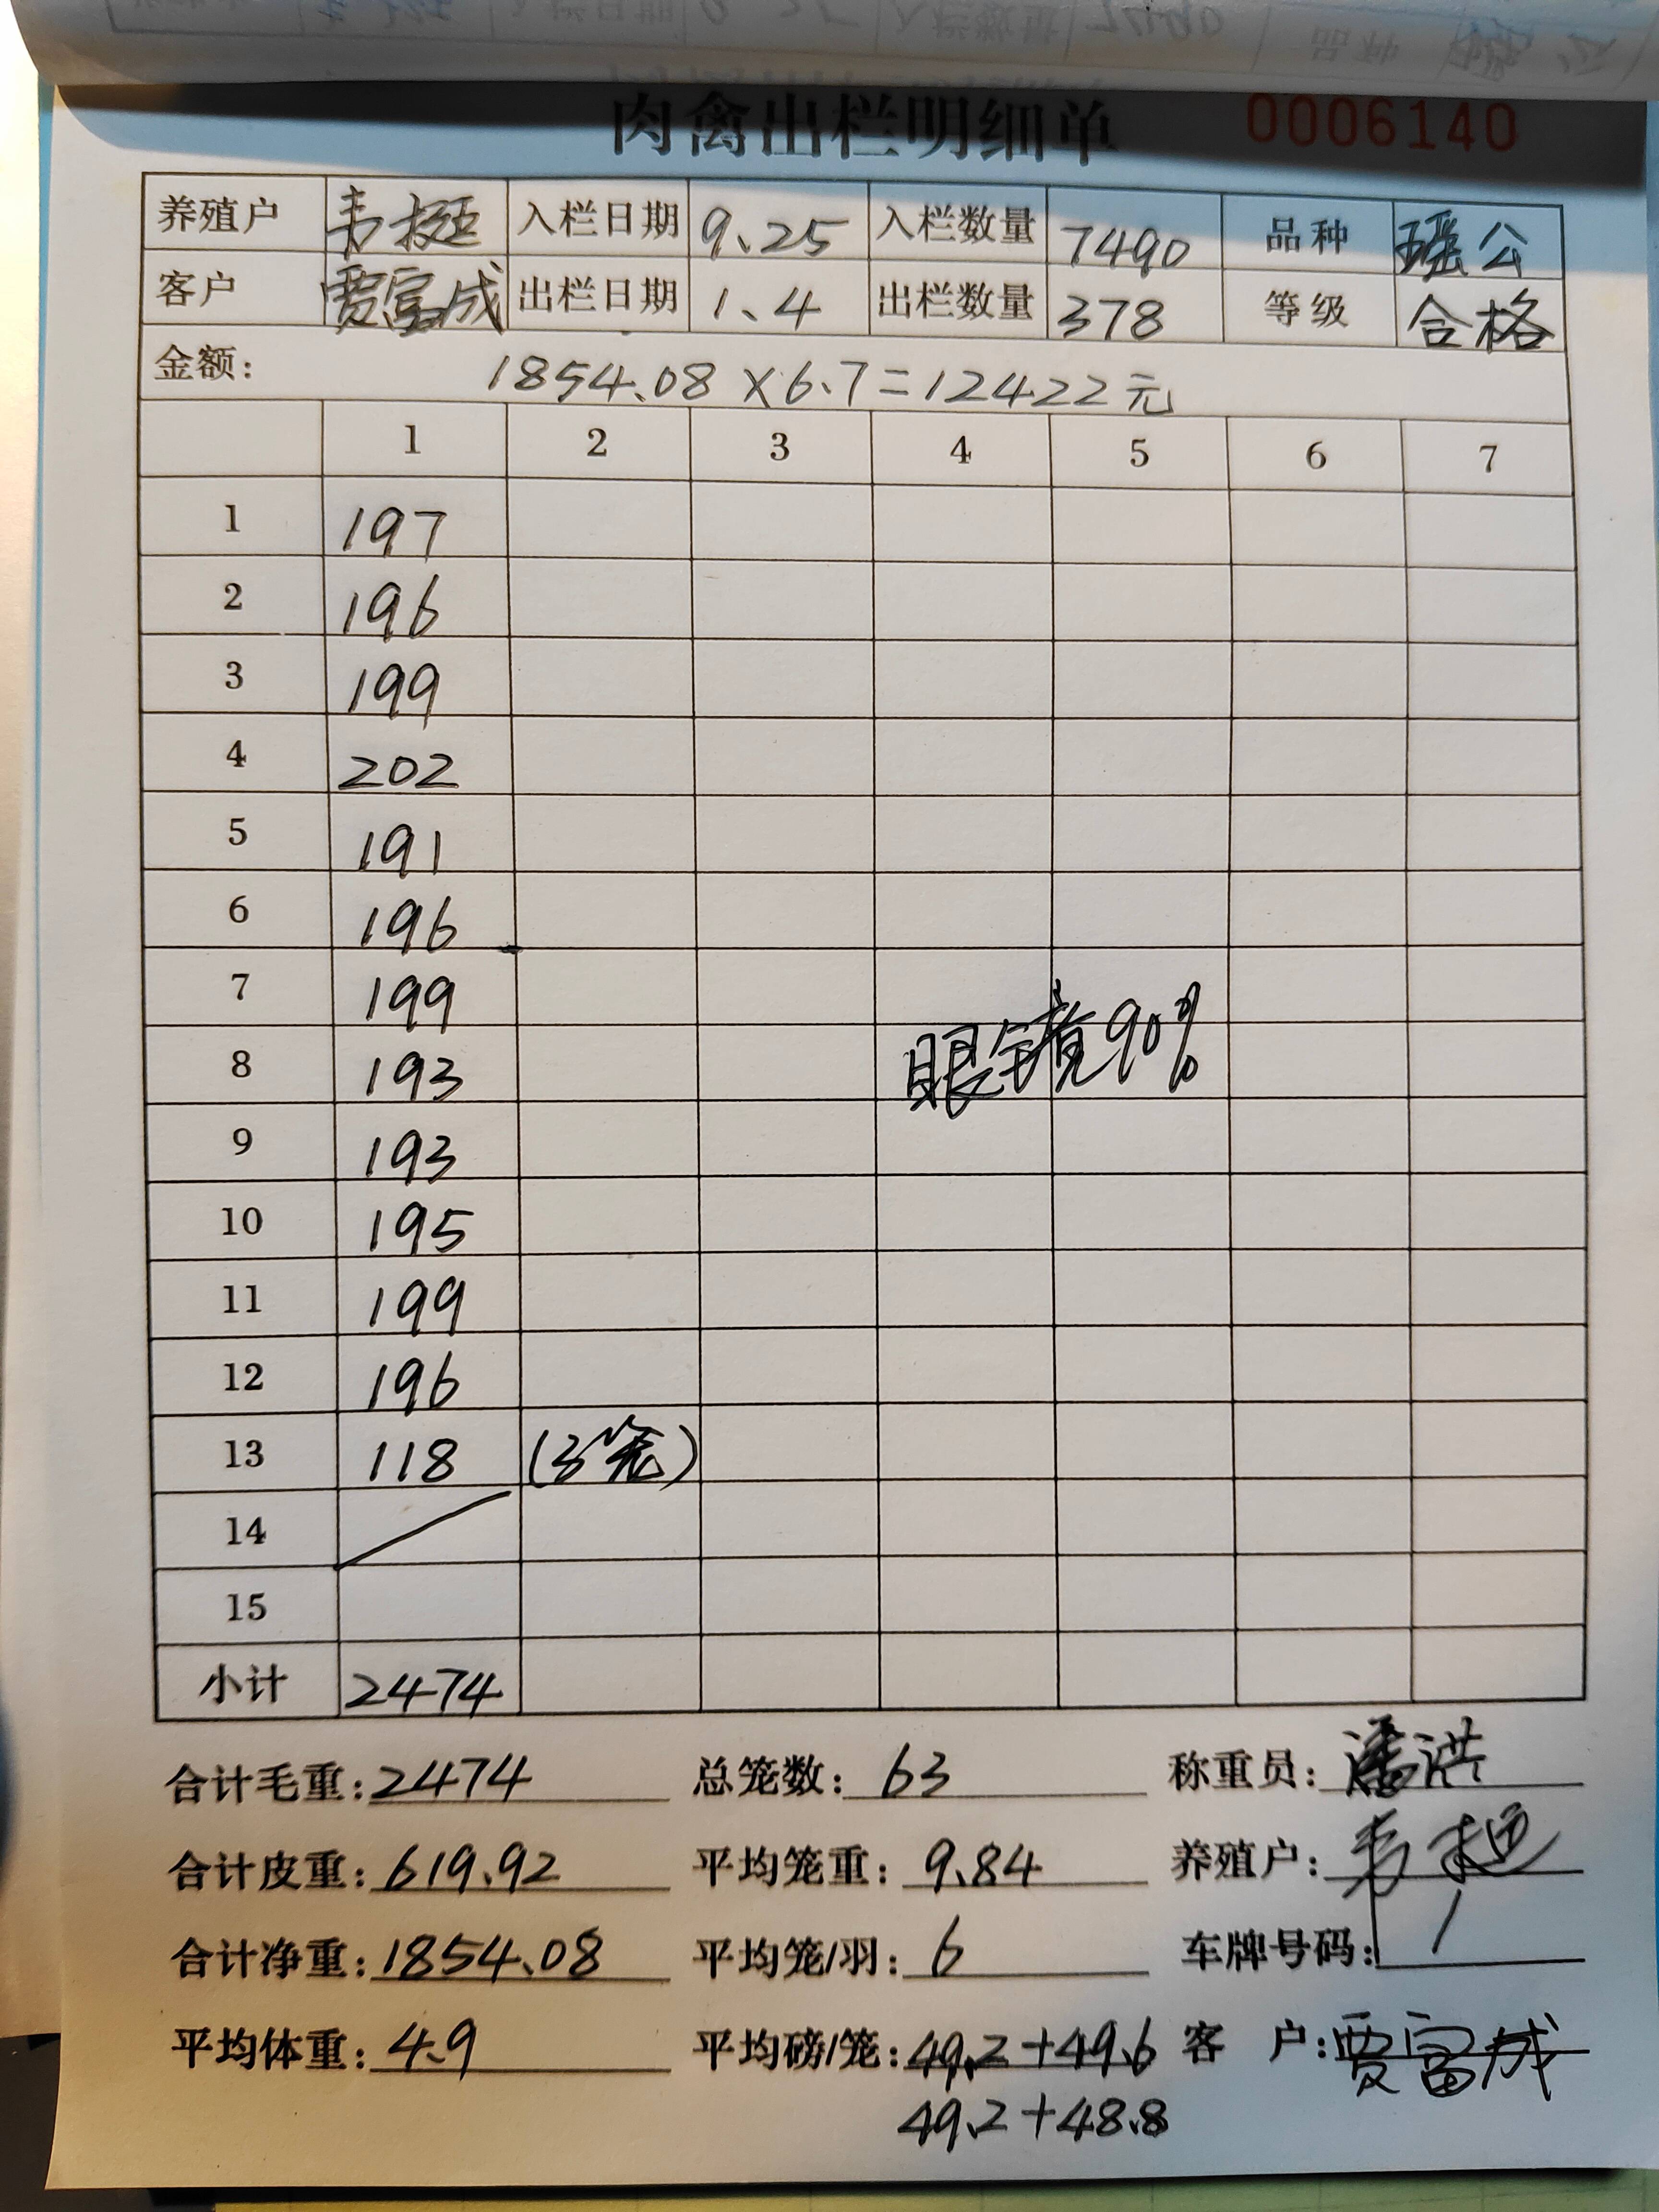 肉禽出栏明细单 0006140
养殖户 韦挺 入栏日期 9.25 入栏数量 7490 品种 瑶公
客户 贾富成 出栏日期 1.4 出栏数量 378 等级 合格
金额: 1854.08×6.7=12422元
1 2 3 4 5 6 7
1 197
2 196
3 199
4 202
5 191
6 196
7 199
8 193
眼镜90%
9 193
10 195
11 199
12 196
13 118 (3笼)
14
15
小计 2474
合计毛重: 2474 总笼数: 63 称重员: 潘洪
合计皮重: 619.92 平均笼重: 9.84 养殖户: 韦挺
合计净重: 1854.08 平均笼/羽: 6 车牌号码:
平均体重: 4.9 平均磅/笼: 49.2+49.6 客户: 贾富成
49.2+48.8